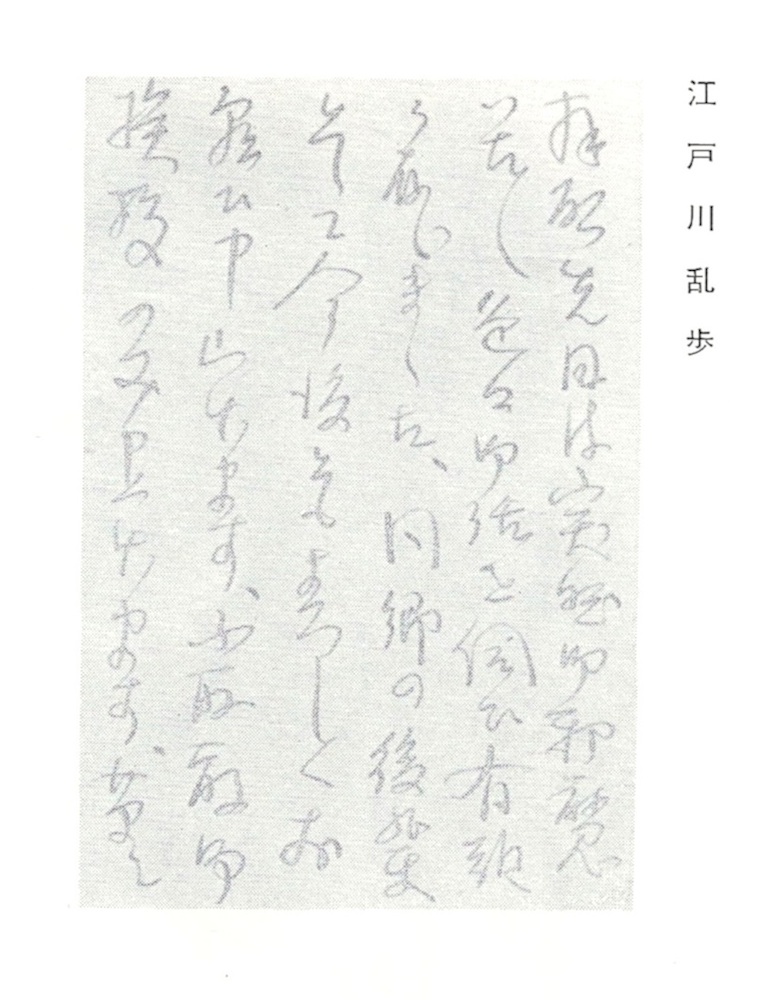 江戸川乱歩
拝啓先日は突然御邪魔
いたし色々御話を伺ひ有難
う存じました、同郷の後輩
として今後ともよろしくお
願ひ申し上ます、不取敢御
挨拶のみ申上ます、草々